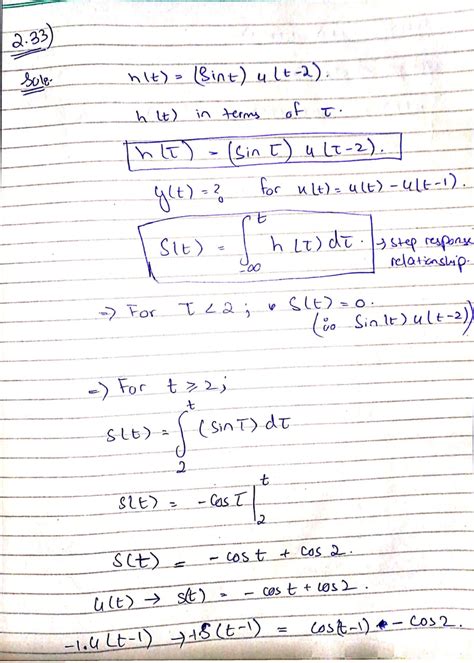 2.33)
Soln.
h(t) = (Sint) u(t-2).
h(t) in terms of τ.
h(τ) = (sin τ) u(τ-2).
y(t) = ? for x(t) = u(t) - u(t-1).
S(t) = ∫_{-∞}^{t} h(τ) dτ. → step response relationship.
=> For τ < 2 ; S(t) = 0.
(∵ Sin(t) u(t-2))
=> For t ≥ 2;
S(t) = ∫_{2}^{t} (sin τ) dτ
S(t) = - Cos τ |_{2}^{t}
S(t) = - cos t + cos 2.
u(t) → s(t) = - cos t + cos 2.
-1.u(t-1) → -1.S(t-1) = cos(t-1) - cos 2.